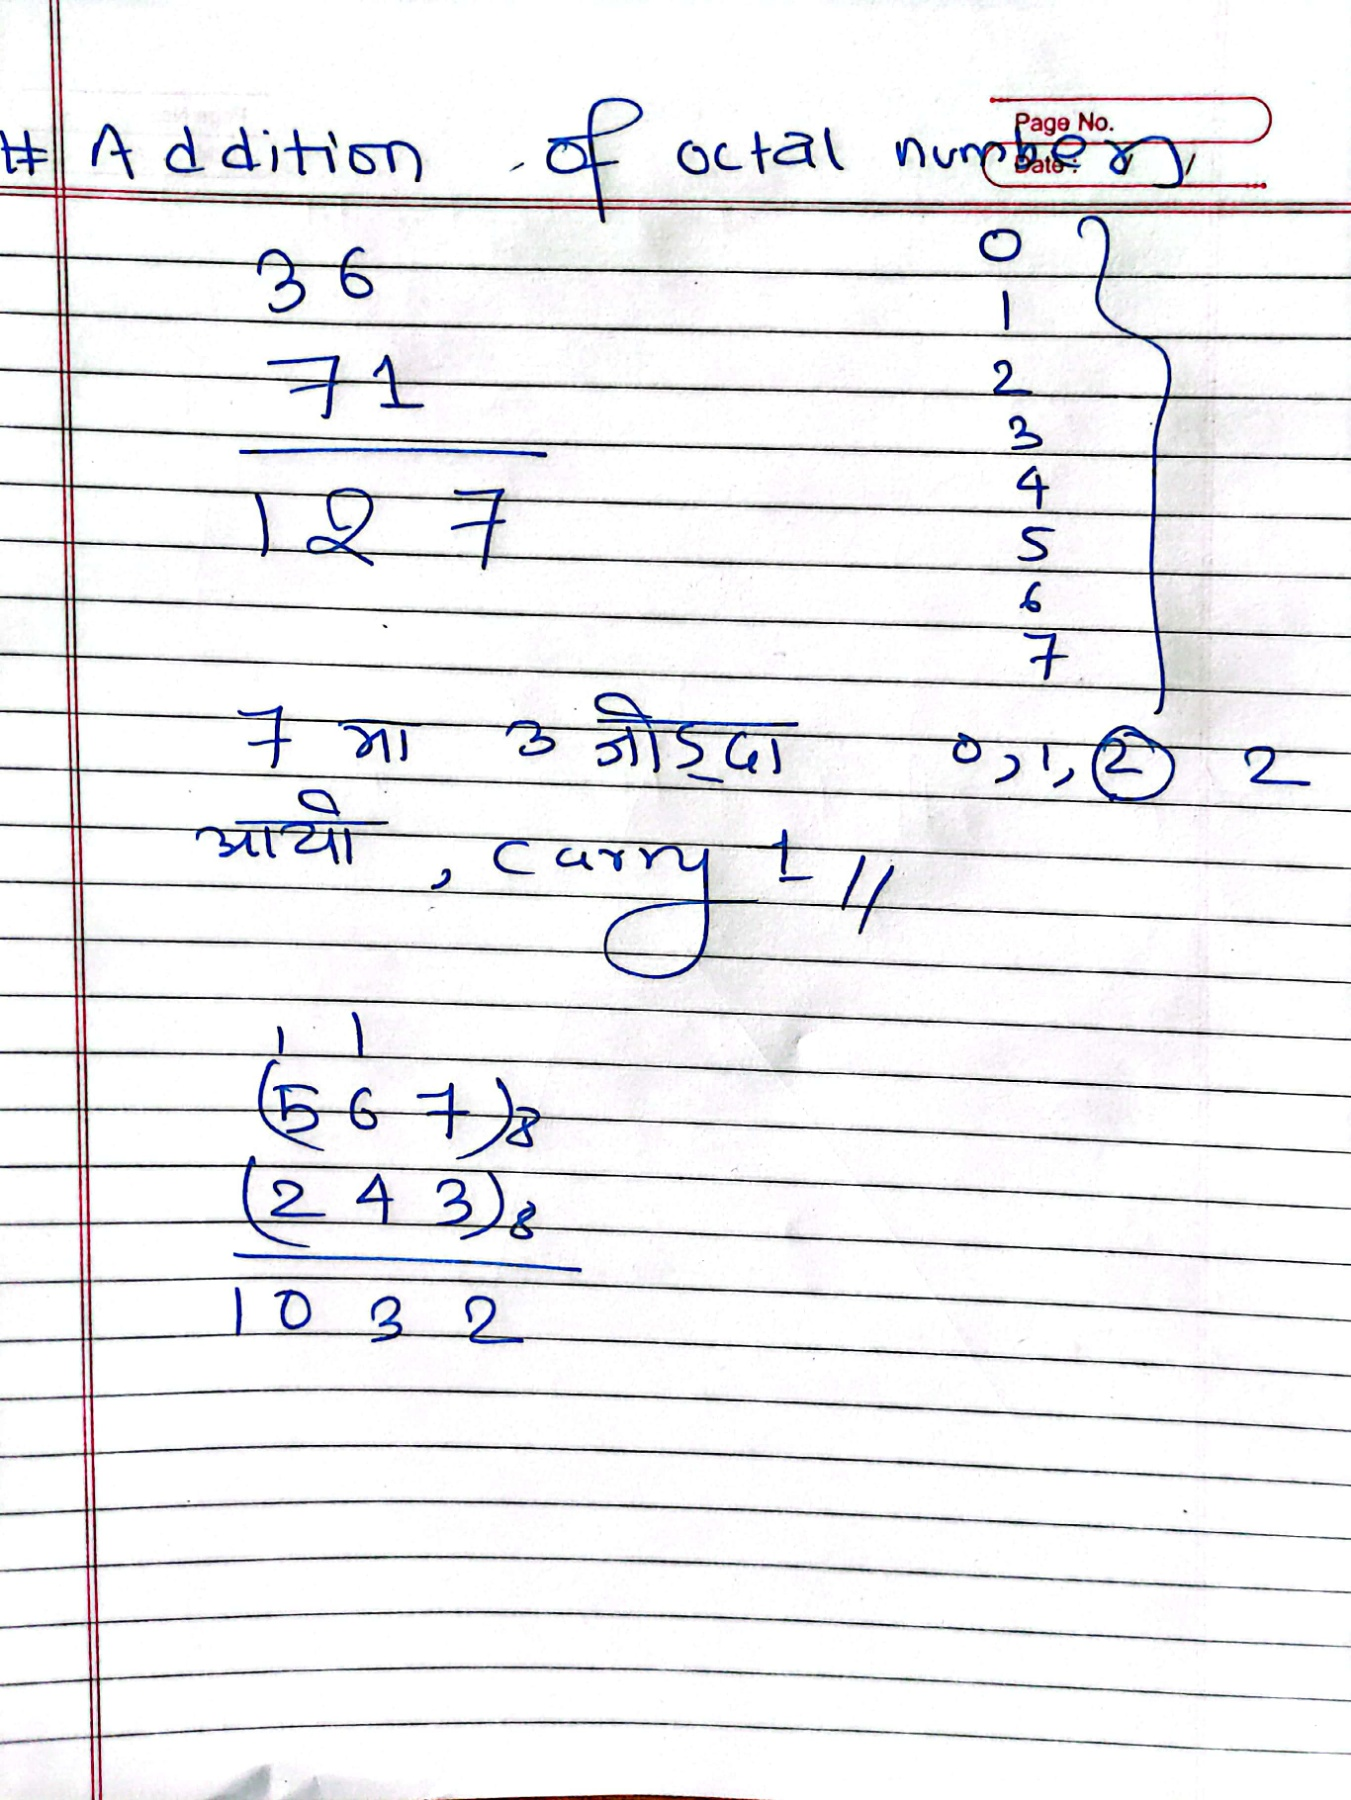 Page No.
Date :
# Addition of octal number
36
71
127
0
1
2
3
4
5
6
7
7 मा 3 जोड्दा 0, 1, 2 2
आयो, carry 1 //
1 1
(567)8
(243)8
1032